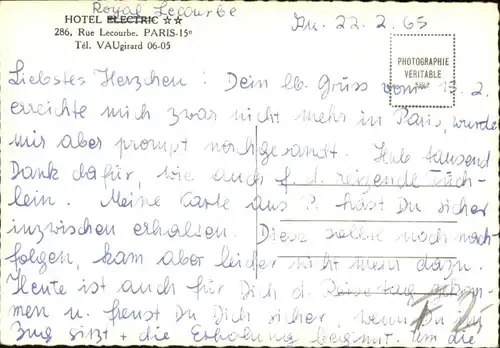 Royal Lecourbe
HOTEL ELECTRIC ★★
286, Rue Lecourbe. PARIS-15e
Tél. VAUgirard 06-05
22. 2. 65
PHOTOGRAPHIE
VERITABLE
Liebstes Herzchen! Dein lb. Gruss vom 13. 2.
erreichte mich zwar nicht mehr in Paris, wurde
mir aber prompt nachgesandt. Hab tausend
Dank dafür, wie auch f. d. reizende Tüch-
lein. Meine Karte aus P. hast Du sicher
inzwischen erhalten. Diese sollte noch nach-
folgen, kam aber leider nicht mehr dazu.
Heute ist auch für Dich d. Reisetag gekom-
men u. freust Du Dich sicher, wenn Du im
Zug sitzt + die Erholung beginnt. Um die